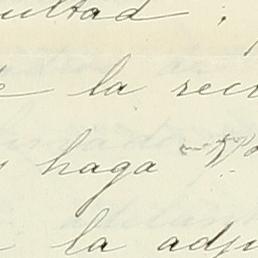 ultad ;
la rec
haga
la adju